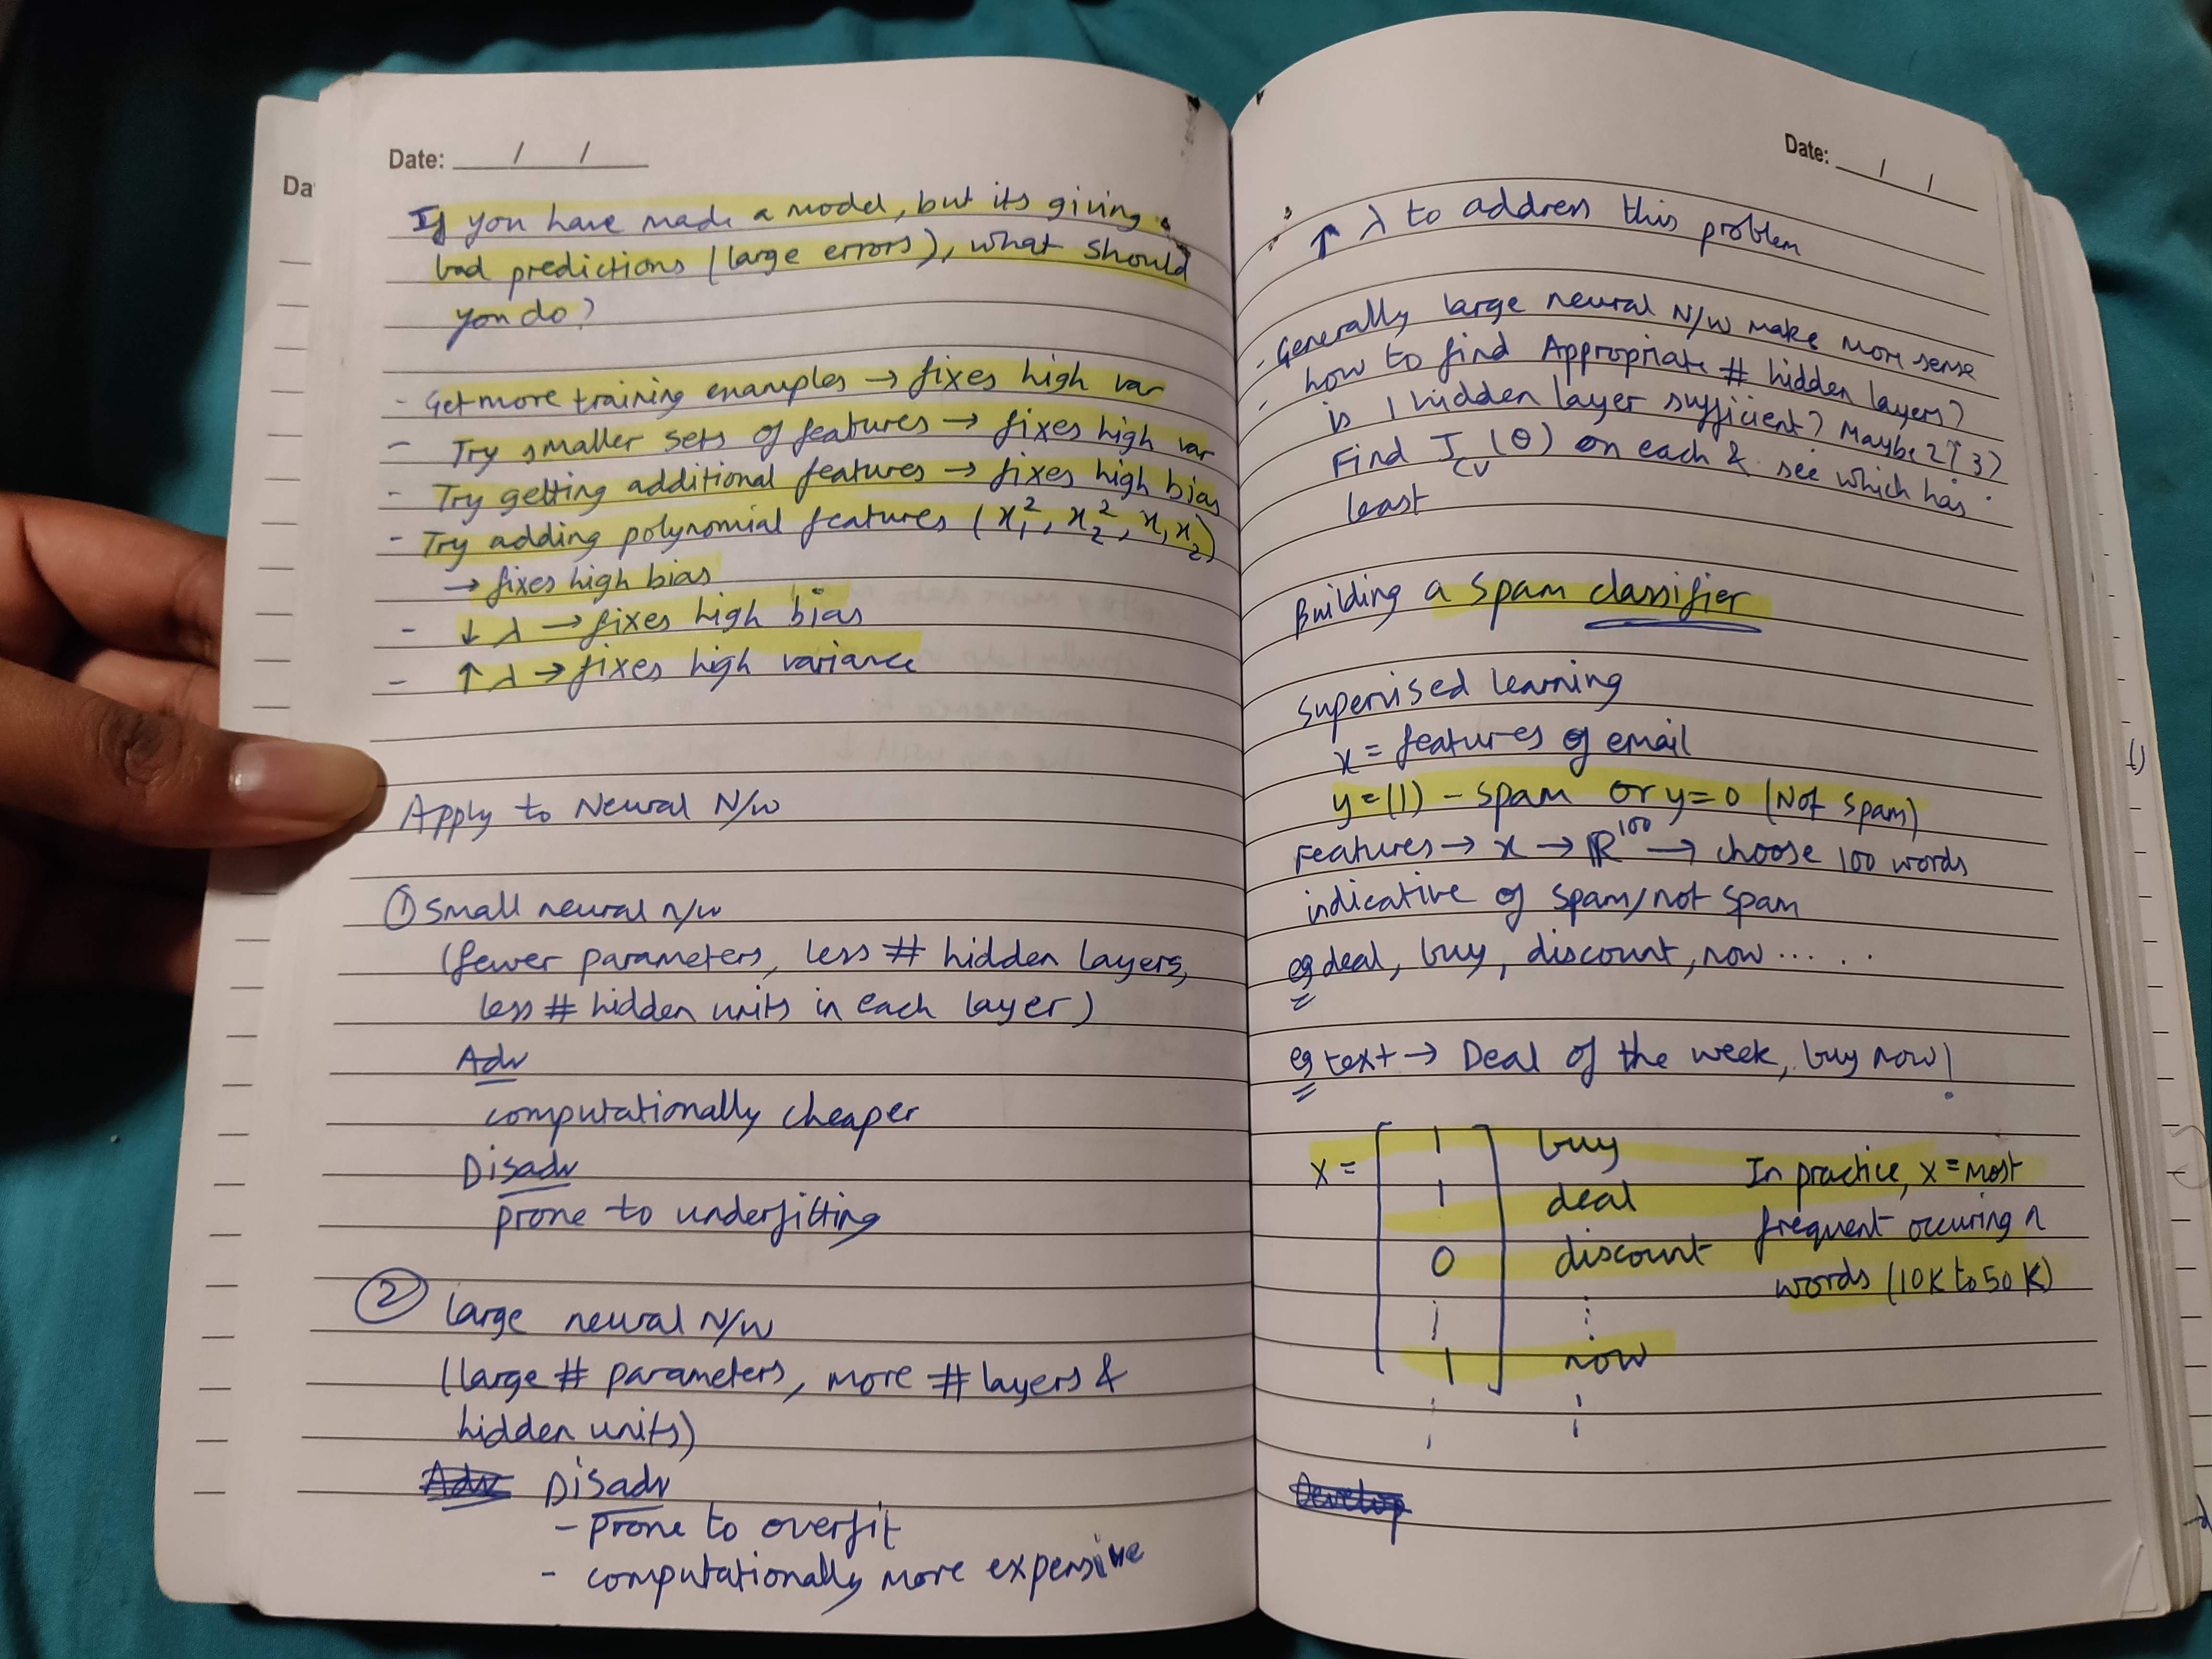 Date: __/__/__
If you have made a model, but its giving
bad predictions (large errors), what should
you do?
- Get more training examples → fixes high var
- Try smaller sets of features → fixes high var
- Try getting additional features → fixes high bias
- Try adding polynomial features (x₁², x₂², x₁x₂)
→ fixes high bias
- ↓ λ → fixes high bias
- ↑ λ → fixes high variance
Apply to Neural N/w
① Small neural n/w
(fewer parameters, less # hidden layers,
less # hidden units in each layer)
Adv
computationally cheaper
Disadv
prone to underfitting
② large neural N/w
(large # parameters, more # layers &
hidden units)
Disadv
- prone to overfit
- computationally more expensive
Da
Date: __/__/__
↑ λ to address this problem
- Generally large neural N/w make more sense
- how to find Appropriate # hidden layers?
is 1 hidden layer sufficient? Maybe 2? 3?
Find J_cv(θ) on each & see which has
least
Building a spam classifier
Supervised learning
x = features of email
y = (1) - spam or y = 0 (Not spam)
Features → x → ℝ¹⁰⁰ → choose 100 words
indicative of spam/not spam
eg deal, buy, discount, now .....
eg text → Deal of the week, buy now!
x = [ 1 buy
1 deal
0 discount
⋮ ⋮
1 ] now
⋮ ⋮
In practice, x = most
frequent occuring n
words (10K to 50K)